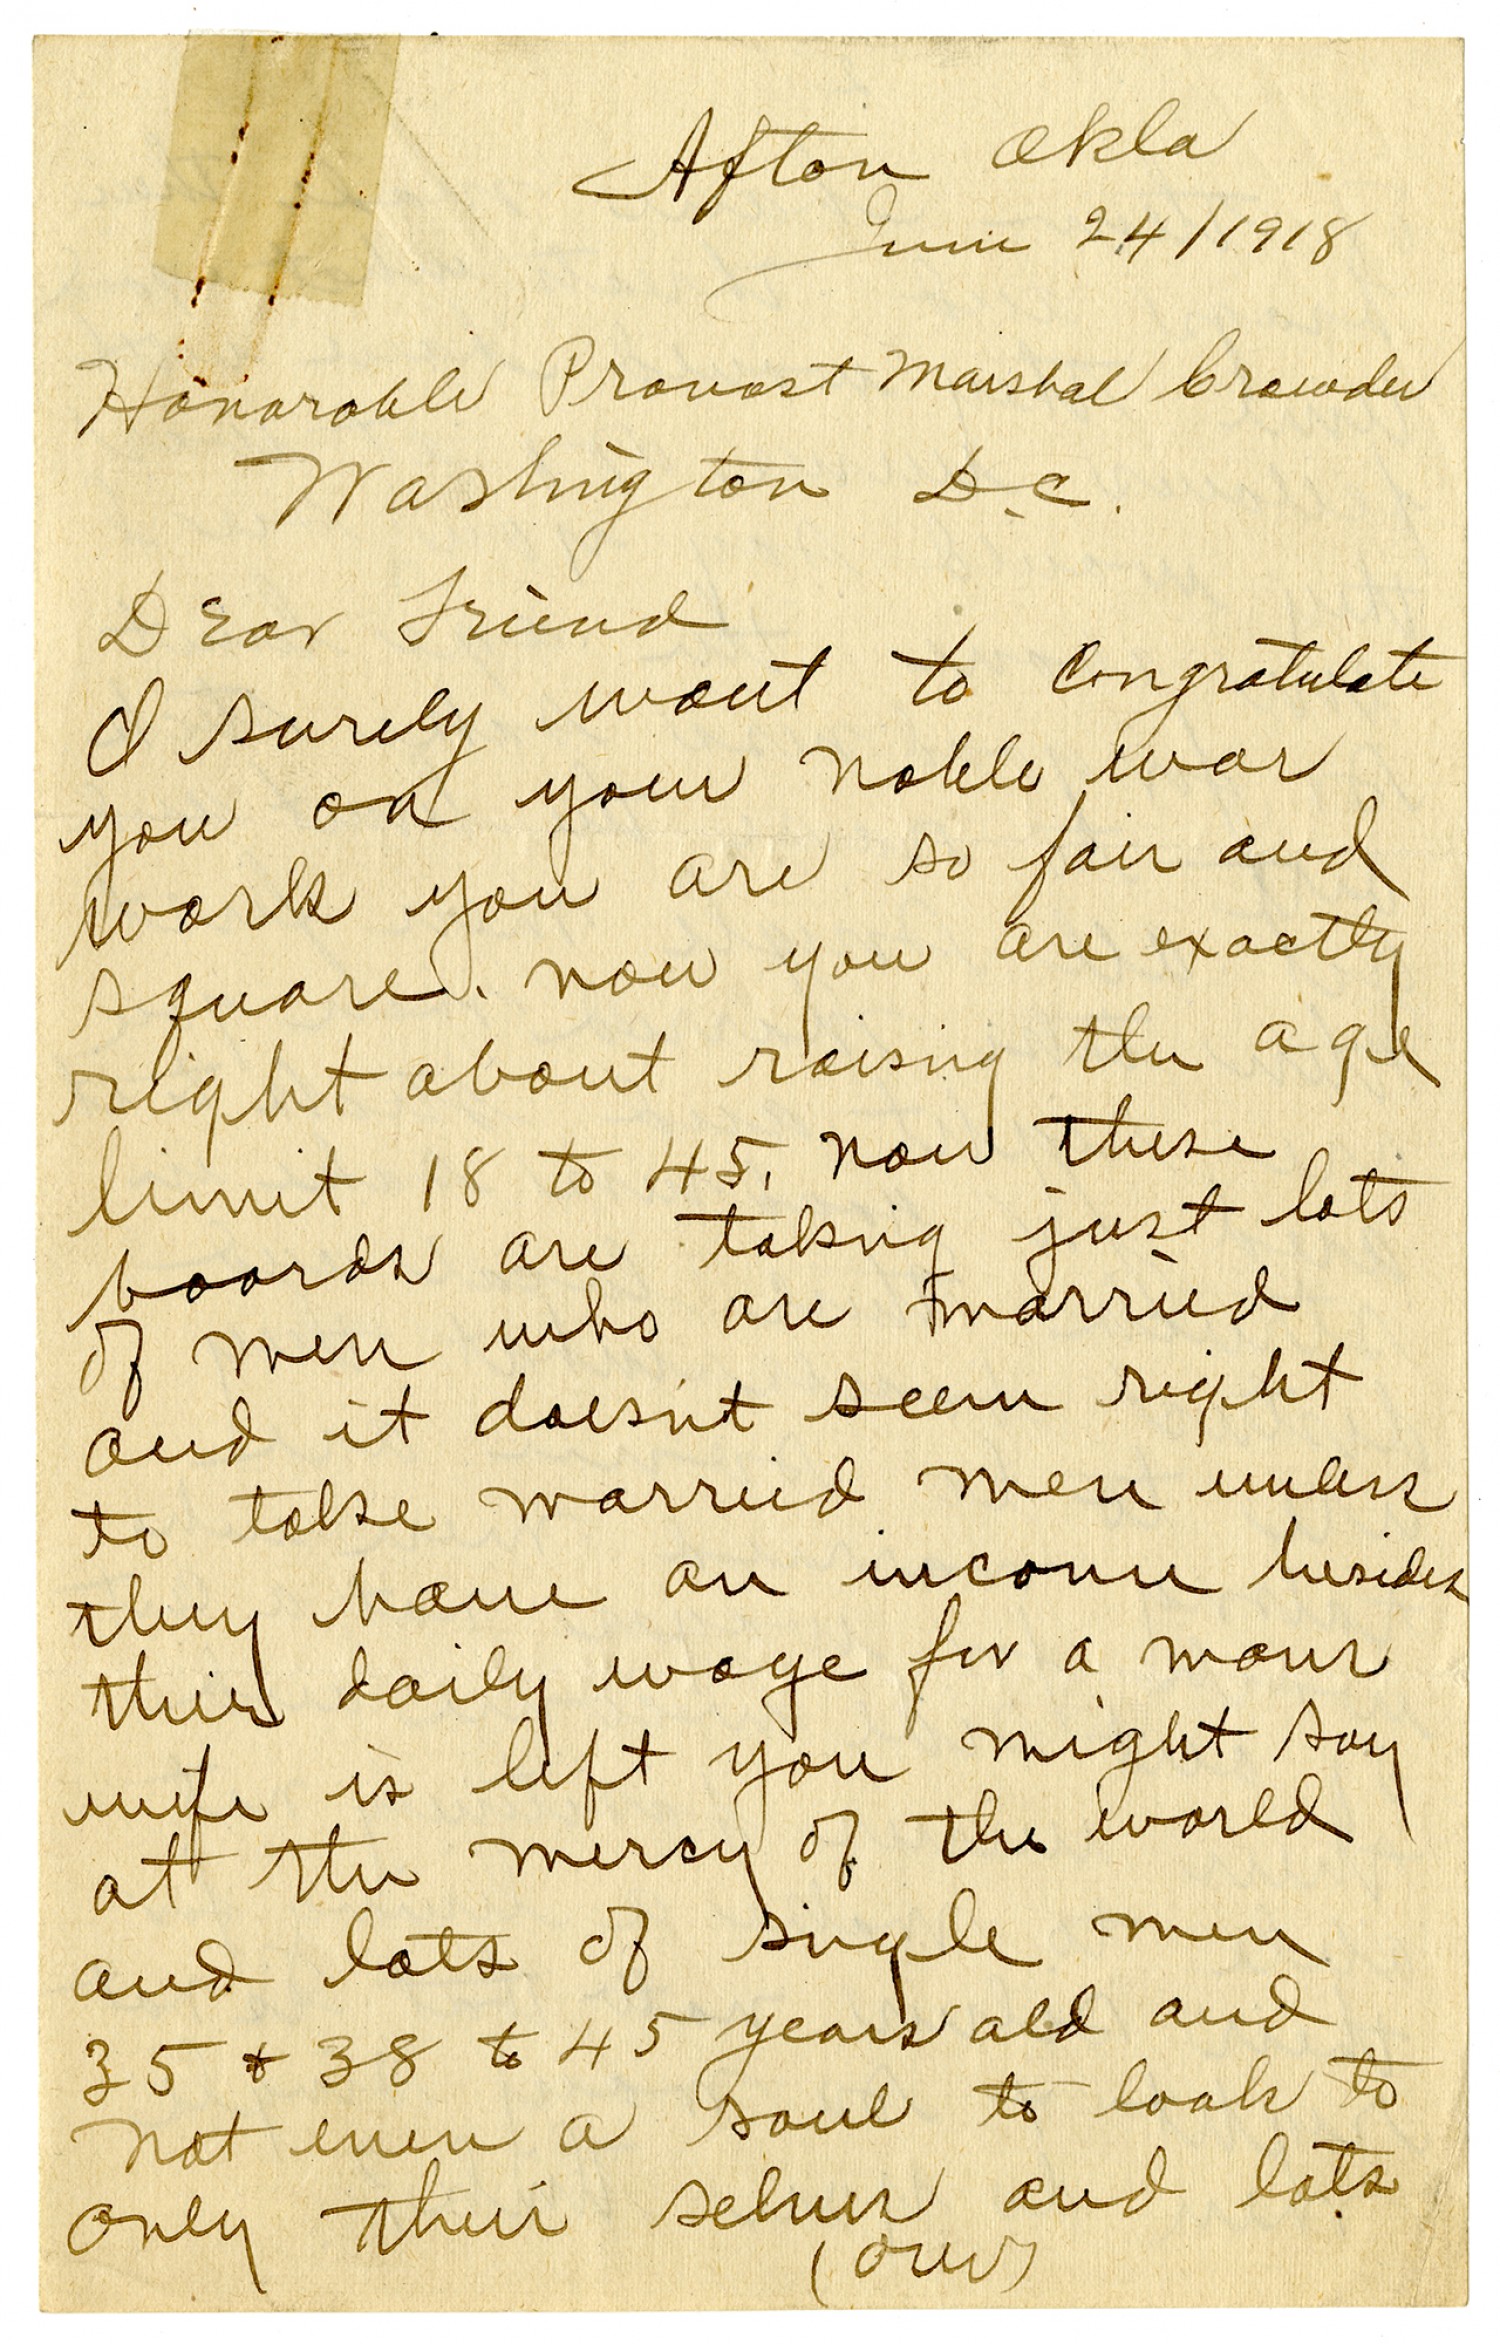 Afton Okla
June 24/1918
Honorable Provost Marshal Crowder
Washington D.C.
Dear Friend
I surely want to congratulate
you on your noble war
work you are so fair and
square. now you are exactly
right about raising the age
limit 18 to 45. now these
boards are taking just lots
of men who are married
and it doesn't seem right
to take married men unless
they have an income besides
their daily wage for a mans
wife is left you might say
at the mercy of the world
and lots of single men
35 + 38 to 45 years old and
not even a soul to look to
only their selves and lots
(over)